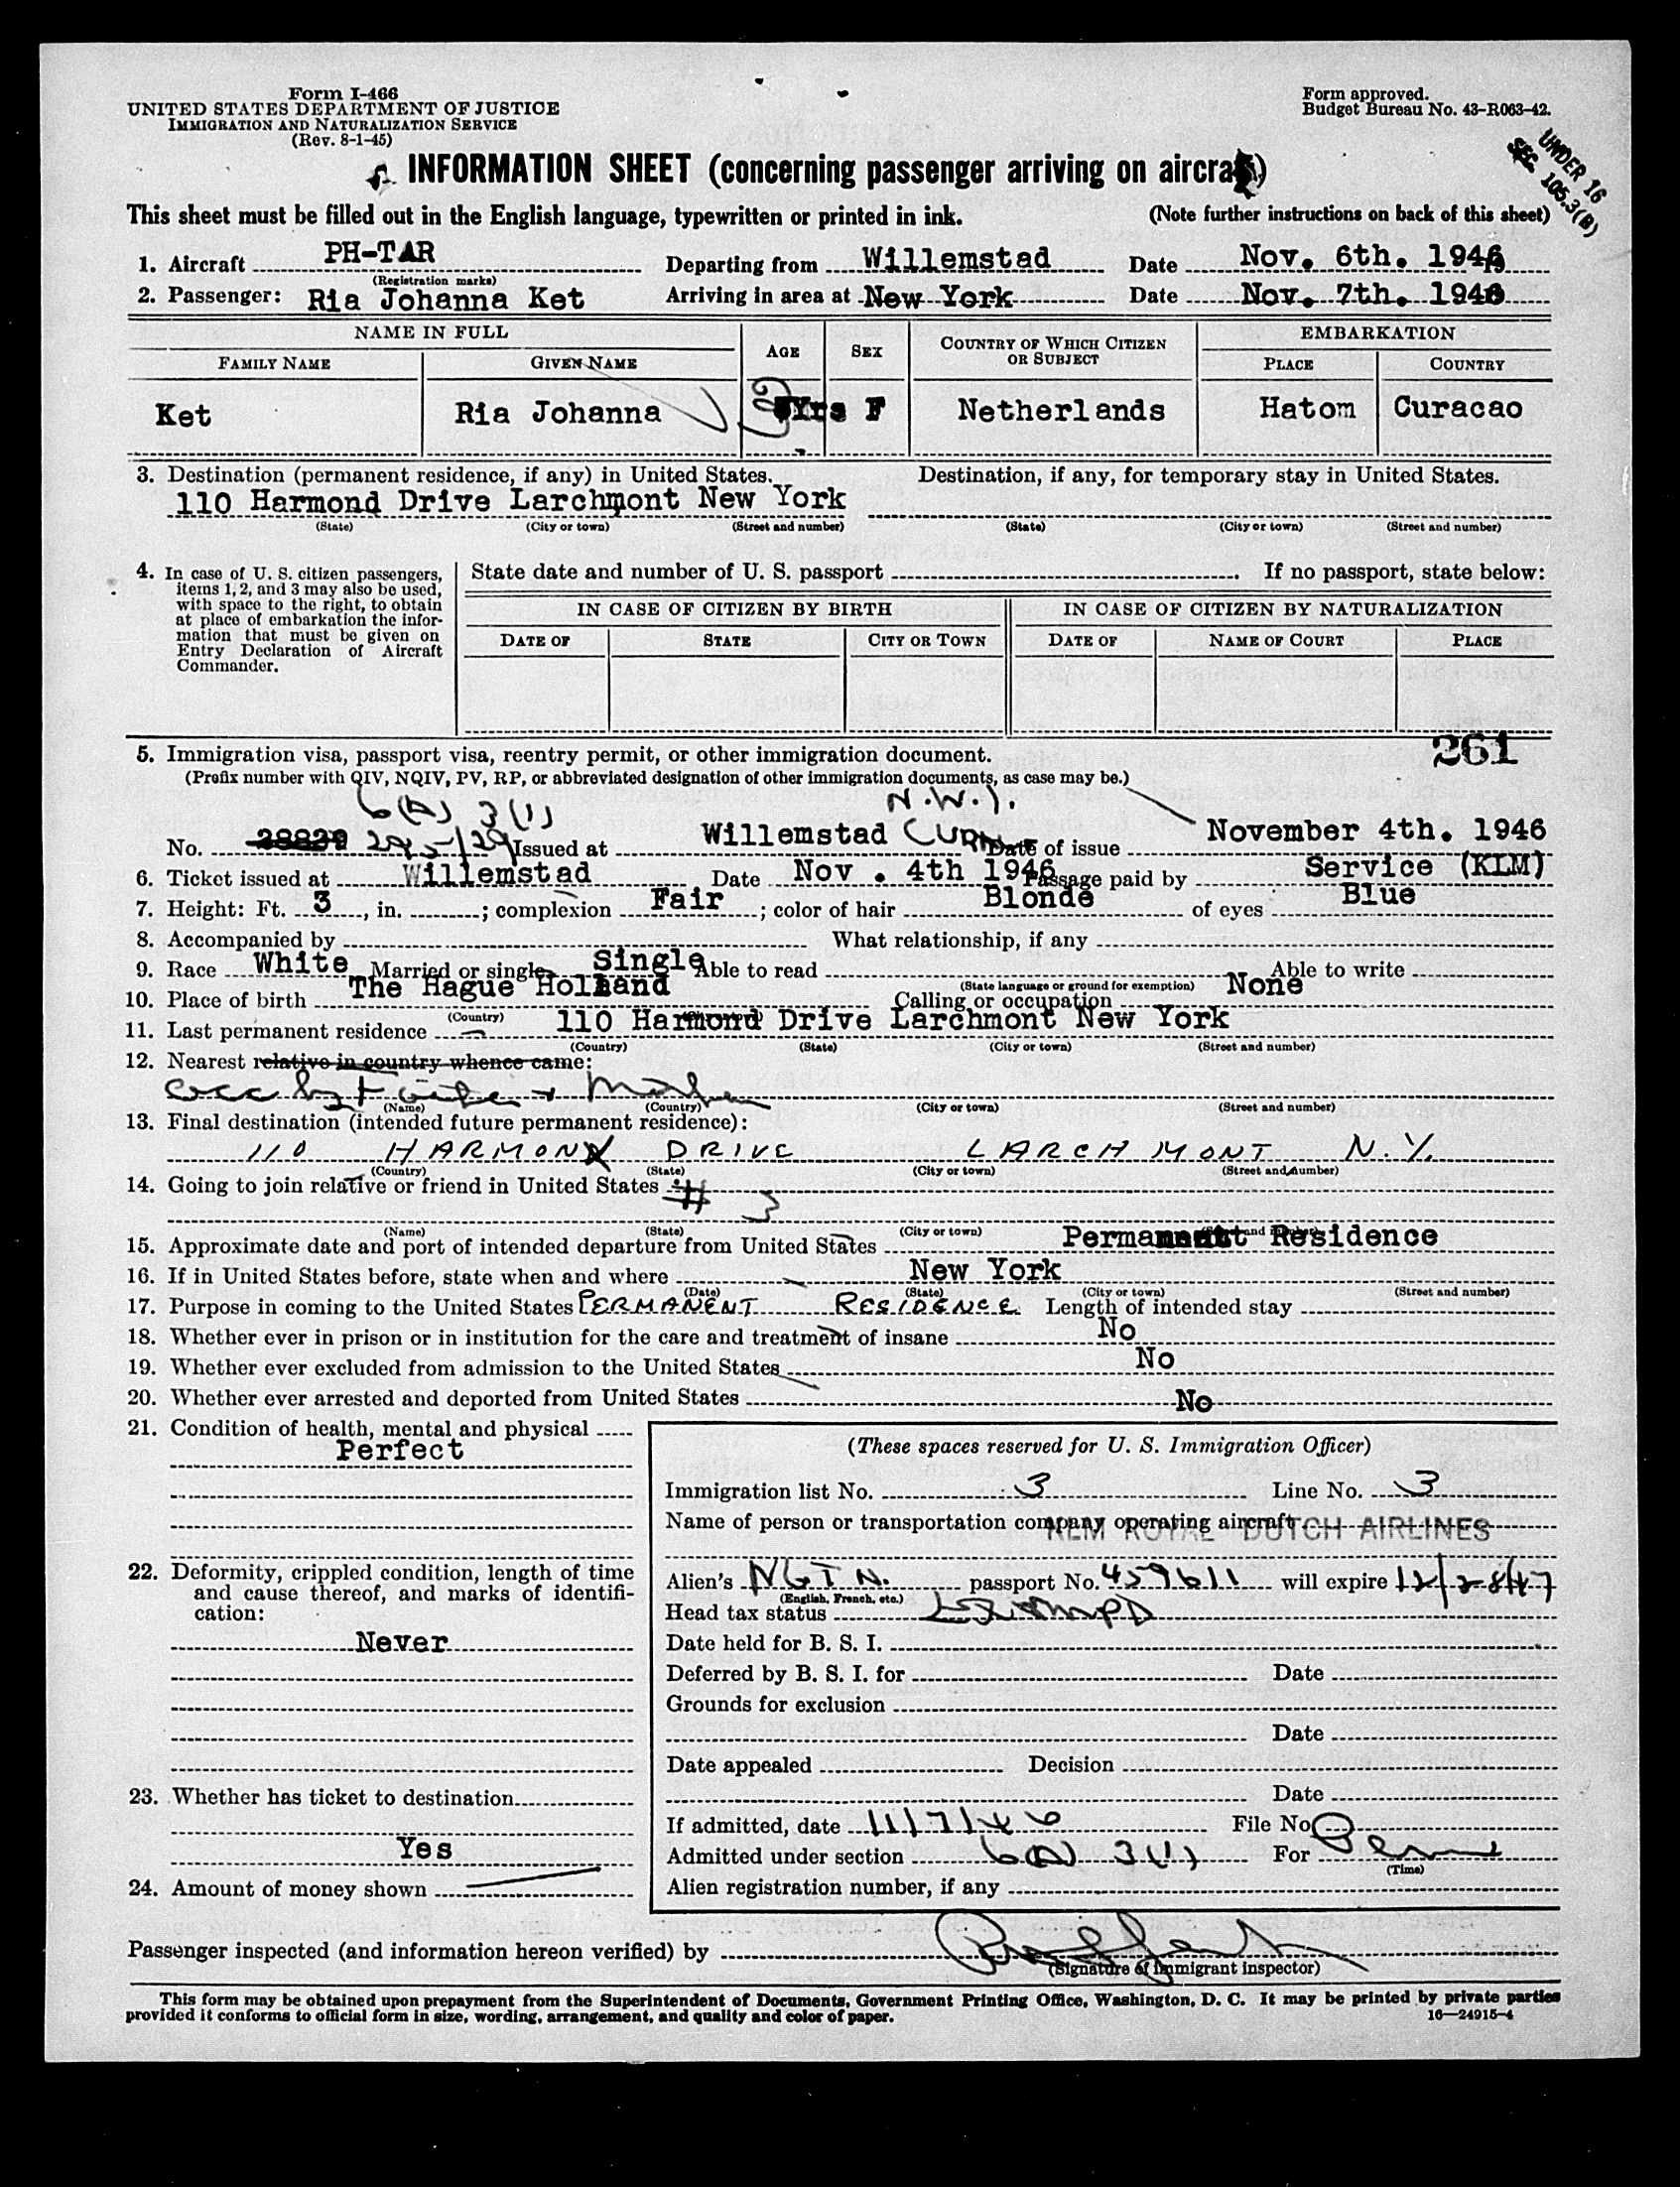 Form I-466
UNITED STATES DEPARTMENT OF JUSTICE
IMMIGRATION AND NATURALIZATION SERVICE
(Rev. 8-1-45)
Form approved.
Budget Bureau No. 43-R063-42.
UNDER 16
SEC. 105.3(B)
INFORMATION SHEET (concerning passenger arriving on aircraft)
This sheet must be filled out in the English language, typewritten or printed in ink. (Note further instructions on back of this sheet)
1. Aircraft PH-TAR Departing from Willemstad Date Nov. 6th. 1946
(Registration marks)
2. Passenger: Ria Johanna Ket Arriving in area at New York Date Nov. 7th. 1946
NAME IN FULL AGE SEX COUNTRY OF WHICH CITIZEN OR SUBJECT EMBARKATION
FAMILY NAME GIVEN NAME PLACE COUNTRY
Ket Ria Johanna 3 Yrs F Netherlands Hatom Curacao
3. Destination (permanent residence, if any) in United States. Destination, if any, for temporary stay in United States.
110 Harmond Drive Larchmont New York
(State) (City or town) (Street and number) (State) (City or town) (Street and number)
4. In case of U. S. citizen passengers, items 1, 2, and 3 may also be used, with space to the right, to obtain at place of embarkation the information that must be given on Entry Declaration of Aircraft Commander.
State date and number of U. S. passport . If no passport, state below:
IN CASE OF CITIZEN BY BIRTH IN CASE OF CITIZEN BY NATURALIZATION
DATE OF STATE CITY OR TOWN DATE OF NAME OF COURT PLACE
261
5. Immigration visa, passport visa, reentry permit, or other immigration document.
(Prefix number with QIV, NQIV, PV, RP, or abbreviated designation of other immigration documents, as case may be.)
6(A) 3(1) N.W.I.
No. Issued at Willemstad Date of issue November 4th. 1946
6. Ticket issued at Willemstad Date Nov . 4th 1946 Passage paid by Service (KLM)
7. Height: Ft. 3, in. ; complexion Fair ; color of hair Blonde of eyes Blue
8. Accompanied by What relationship, if any
9. Race White Married or single Single Able to read Able to write
(State language or ground for exemption)
10. Place of birth The Hague Holland Calling or occupation None
(Country)
11. Last permanent residence 110 Harmond Drive Larchmont New York
(Country) (State) (City or town) (Street and number)
12. Nearest relative in country whence came:
acc by Father + Mother
(Name) (Country) (City or town) (Street and number)
13. Final destination (intended future permanent residence):
110 HARMON DRIVE LARCHMONT N.Y.
(Country) (State) (City or town) (Street and number)
14. Going to join relative or friend in United States # 3
(Name) (State) (City or town) (Street and number)
15. Approximate date and port of intended departure from United States Permanent Residence
16. If in United States before, state when and where New York
(Date) (State) (City or town) (Street and number)
17. Purpose in coming to the United States PERMANENT RESIDENCE Length of intended stay
18. Whether ever in prison or in institution for the care and treatment of insane No
19. Whether ever excluded from admission to the United States No
20. Whether ever arrested and deported from United States No
21. Condition of health, mental and physical
Perfect
22. Deformity, crippled condition, length of time and cause thereof, and marks of identification:
Never
23. Whether has ticket to destination
Yes
24. Amount of money shown
(These spaces reserved for U. S. Immigration Officer)
Immigration list No. 3 Line No. 3
Name of person or transportation company operating aircraft KLM ROYAL DUTCH AIRLINES
Alien's passport No. 459611 will expire 12/28/47
(English, French, etc.)
Head tax status
Date held for B. S. I.
Deferred by B. S. I. for Date
Grounds for exclusion
Date
Date appealed Decision
Date
If admitted, date 11/7/46 File No.
Admitted under section 6(A) 3(1) For Perm
(Time)
Alien registration number, if any
Passenger inspected (and information hereon verified) by
(Signature of immigrant inspector)
This form may be obtained upon prepayment from the Superintendent of Documents, Government Printing Office, Washington, D. C. It may be printed by private parties
provided it conforms to official form in size, wording, arrangement, and quality and color of paper.
16—24915-4